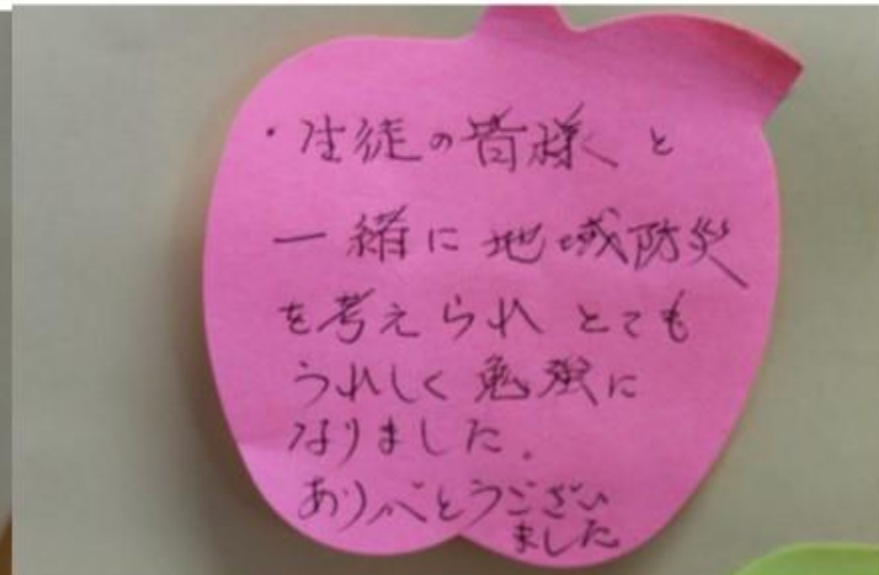 ・生徒の皆様と
一緒に地域防災
を考えられとても
うれしく勉強に
なりました.
ありがとうござい
ました